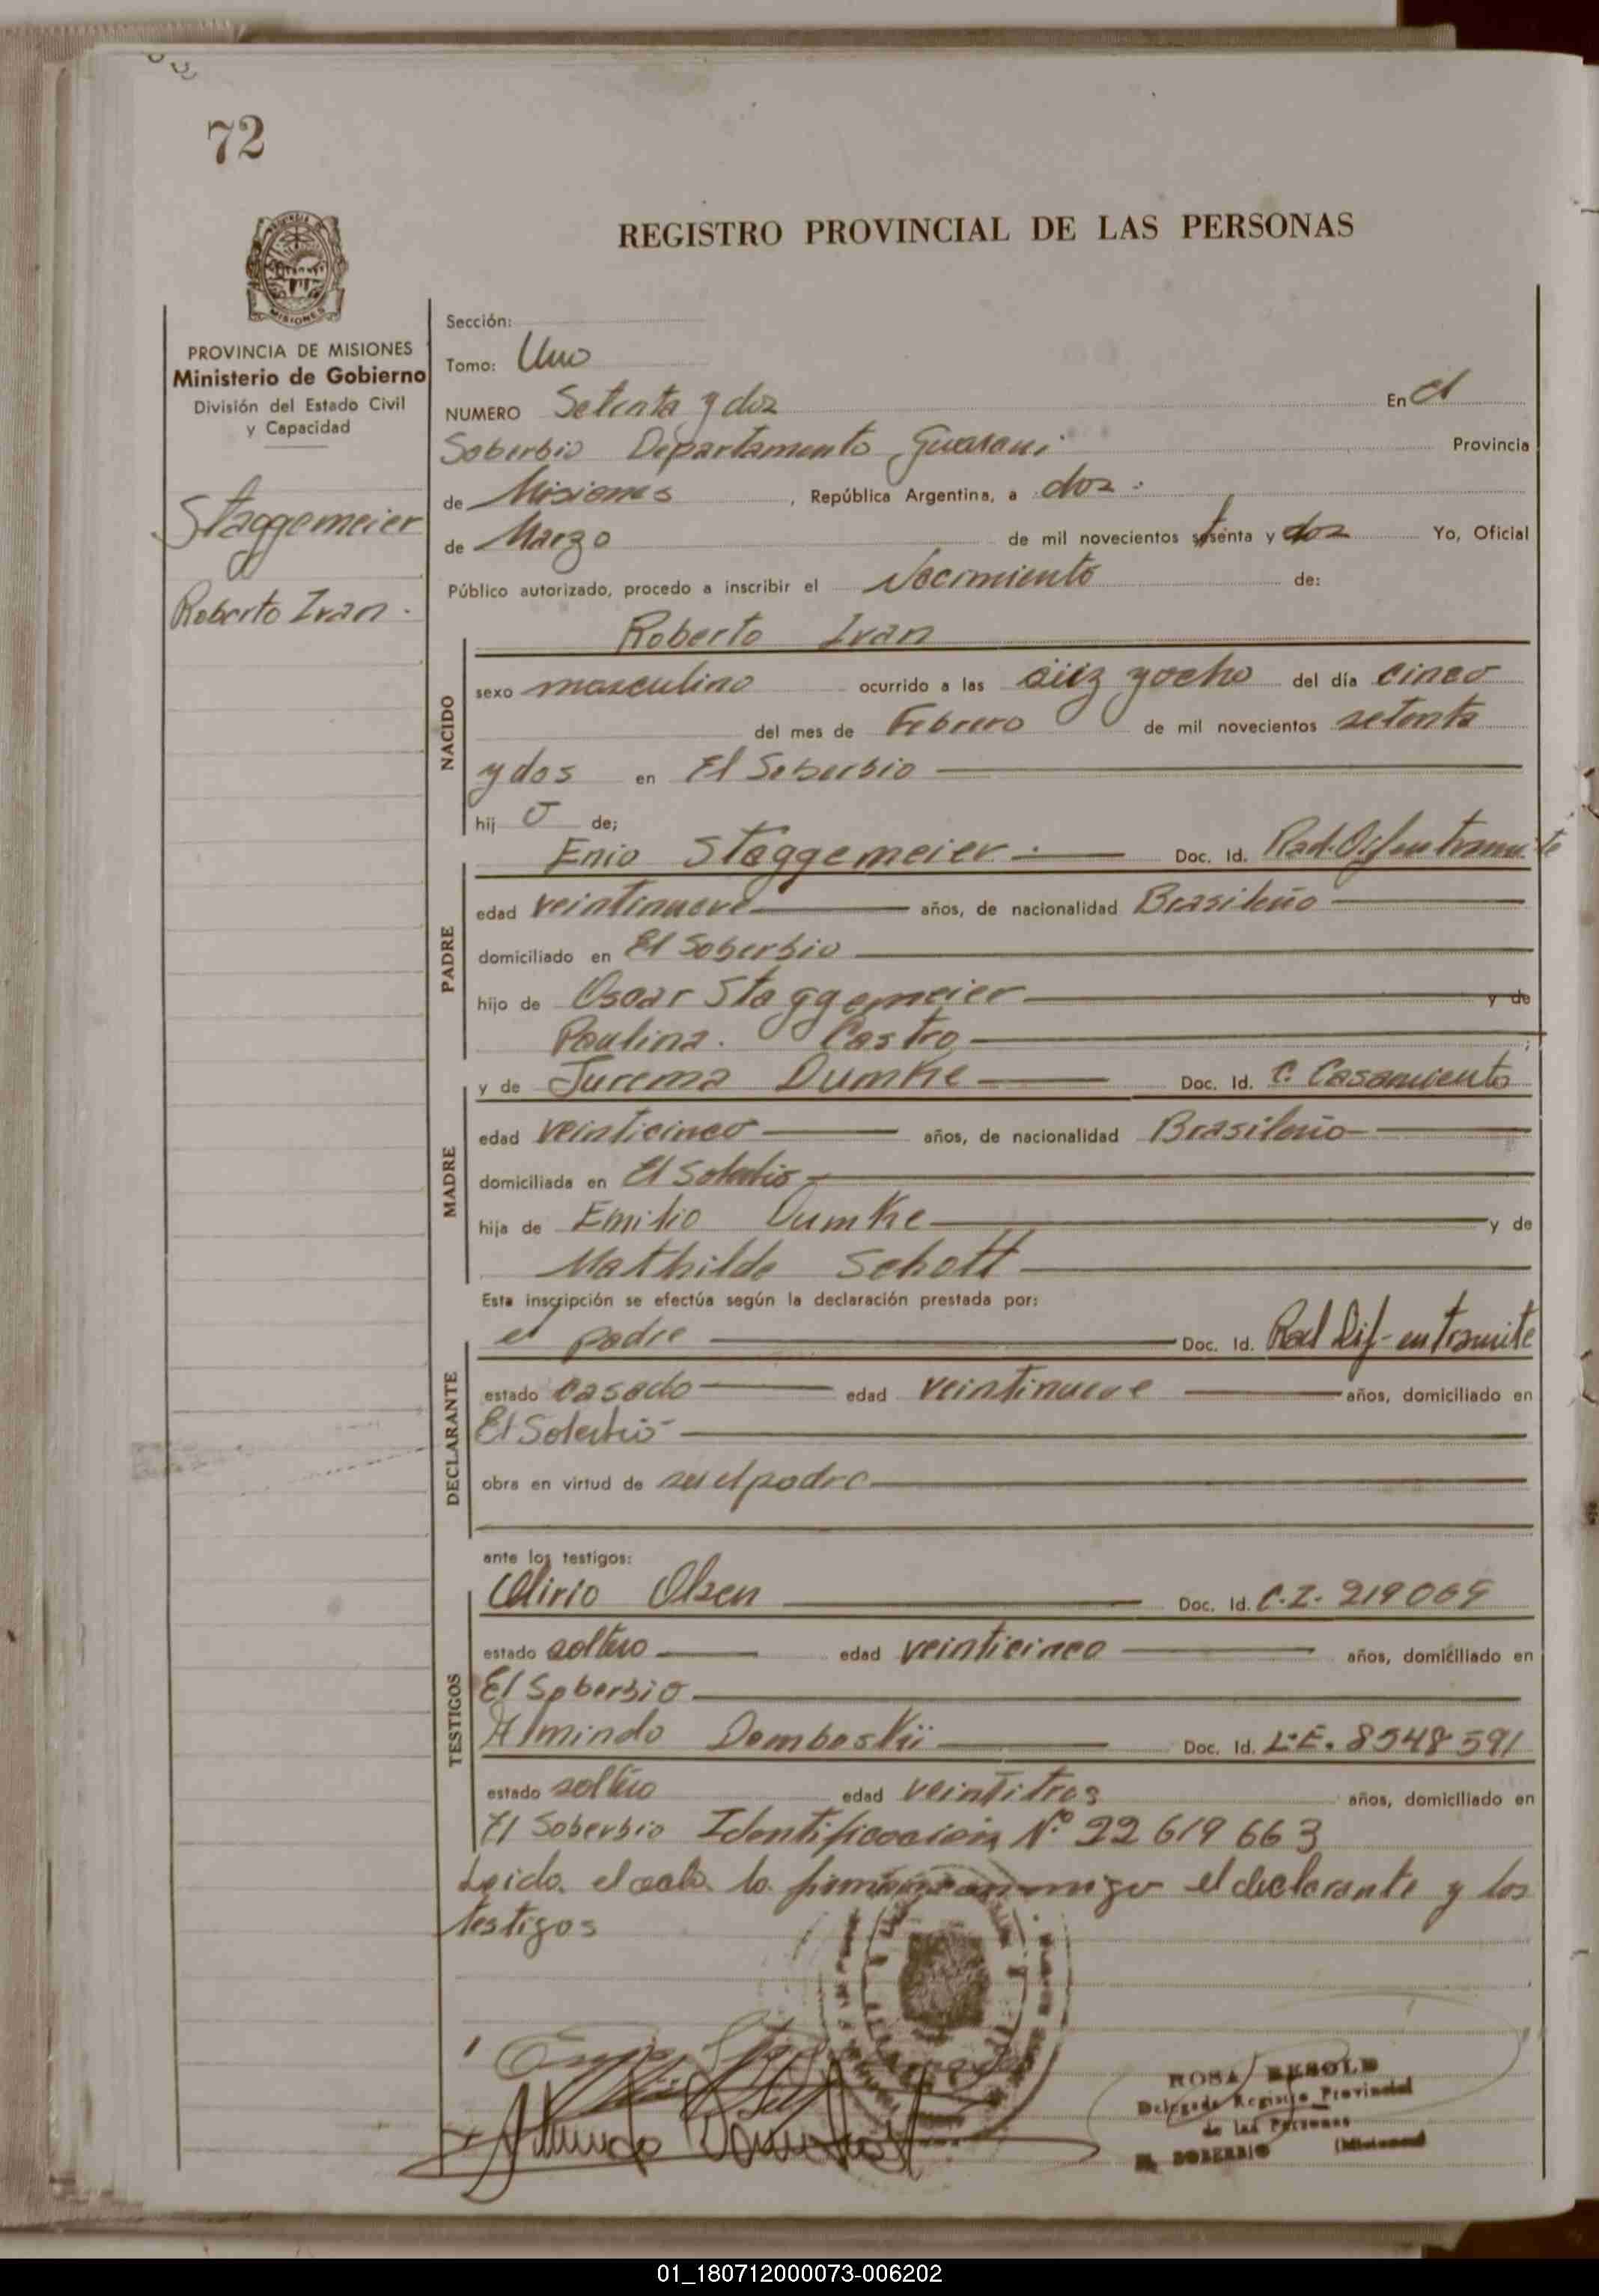 72
REGISTRO PROVINCIAL DE LAS PERSONAS
MISIONES
PROVINCIA DE MISIONES
Ministerio de Gobierno
División del Estado Civil
y Capacidad
Staggemeier
Roberto Ivan.
Sección:
Tomo: Uno
NUMERO Setenta y dos En El
Soberbio Departamento Guarani Provincia
de Misiones, República Argentina, a dos.
de Marzo de mil novecientos setenta y dos Yo, Oficial
Público autorizado, procedo a inscribir el Nacimiento de:
Roberto Ivan
NACIDO
sexo masculino ocurrido a las diez y ocho del día cinco
del mes de Febrero de mil novecientos setenta
y dos en El Soberbio
hij o de;
PADRE
Enio Staggemeier. Doc. Id. Rad. Dif en tramite
edad veintinueve años, de nacionalidad Brasileño
domiciliado en El Soberbio
hijo de Oscar Staggemeier y de
Paulina. Castro
MADRE
y de Jurema Dumke Doc. Id. C. Casamiento
edad veinticinco años, de nacionalidad Brasileño
domiciliada en El Soberbio
hija de Emilio Dumke y de
Mathilde Schott
Esta inscripción se efectúa según la declaración prestada por:
DECLARANTE
el padre Doc. Id. Rad Dif- en tramite
estado casado edad veintinueve años, domiciliado en
El Soberbio
obra en virtud de ser el padre
ante los testigos:
TESTIGOS
Olirio Olsen Doc. Id. C.I. 219069
estado soltero edad veinticinco años, domiciliado en
El Soberbio
Almindo Domboskii Doc. Id. L.E. 8548591
estado soltero edad veintitres años, domiciliado en
El Soberbio Identificación Nº 22619663
Leida el acta la firman conmigo el declarante y los
testigos
ROSA BESOLD
Delegada Registro Provincial
de las Personas
EL SOBERBIO (Misiones)
01_180712000073-006202